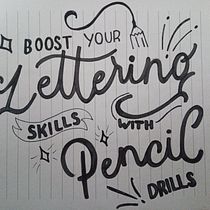 BOOST YOUR
Lettering
SKILLS WITH
Pencil
DRILLS